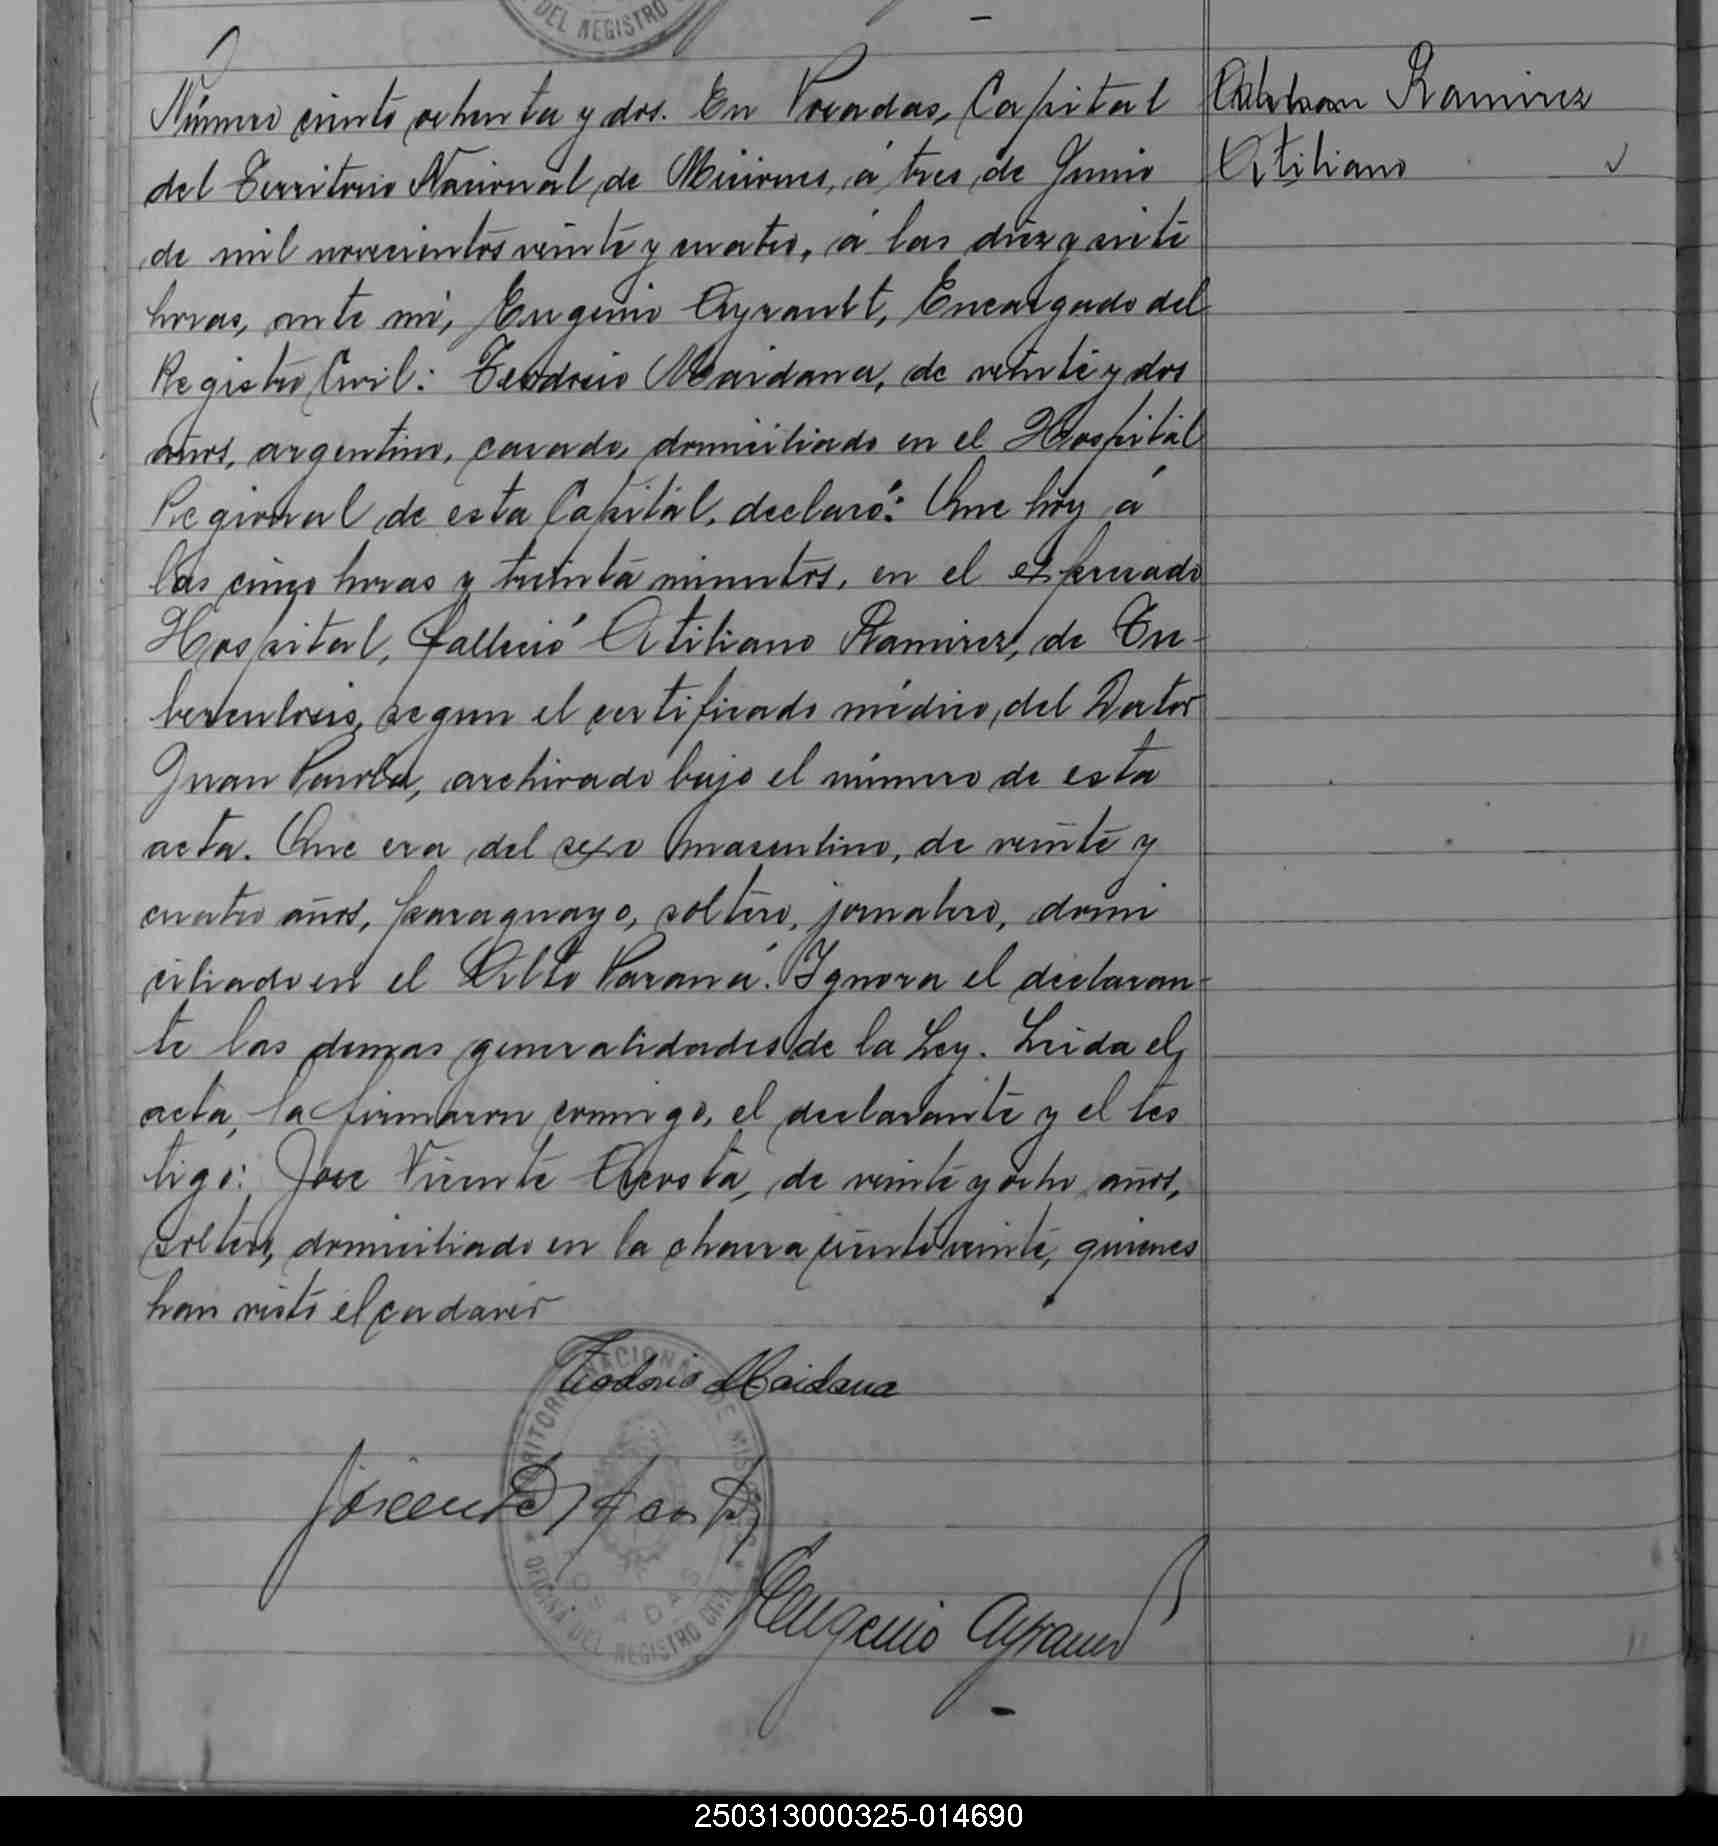 DEL REGISTRO
Número ciento ochenta y dos. En Posadas, Capital
del Territorio Nacional de Misiones, á tres de Junio
de mil novecientos veinte y cuatro, á las diez y siete
horas, ante mí, Eugenio Ayrault, Encargado del
Registro Civil: Teodosio Maidana, de veinte y dos
años, argentino, casado, domiciliado en el Hospital
Regional de esta Capital, declaró: Que hoy á
las cinco horas y treinta minutos, en el expresado
Hospital, falleció Atiliano Ramirez, de Tu-
berculosis, segun el certificado médico, del Doctor
Juan, archivado bajo el número de esta
acta. Que era del sexo masculino, de veinte y
cuatro años, paraguayo, soltero, jornalero, domi
ciliado en el Alto Paraná. Ignora el declaran-
te las demas generalidades de la Ley. Leida el
acta, la firmaron conmigo, el declarante y el tes
tigo: Jose Vicente Acosta, de veinte y ocho años,
soltero, domiciliado en la chacra ciento veinte, quienes
han visto el cadaver
Ramirez
Atiliano
Teodosio Maidana
JVicente Acosta
Eugenio Ayrault
TERRITORIO NACIONAL DE MISIONES
POSADAS
OFICINA DEL REGISTRO CIVIL
250313000325-014690